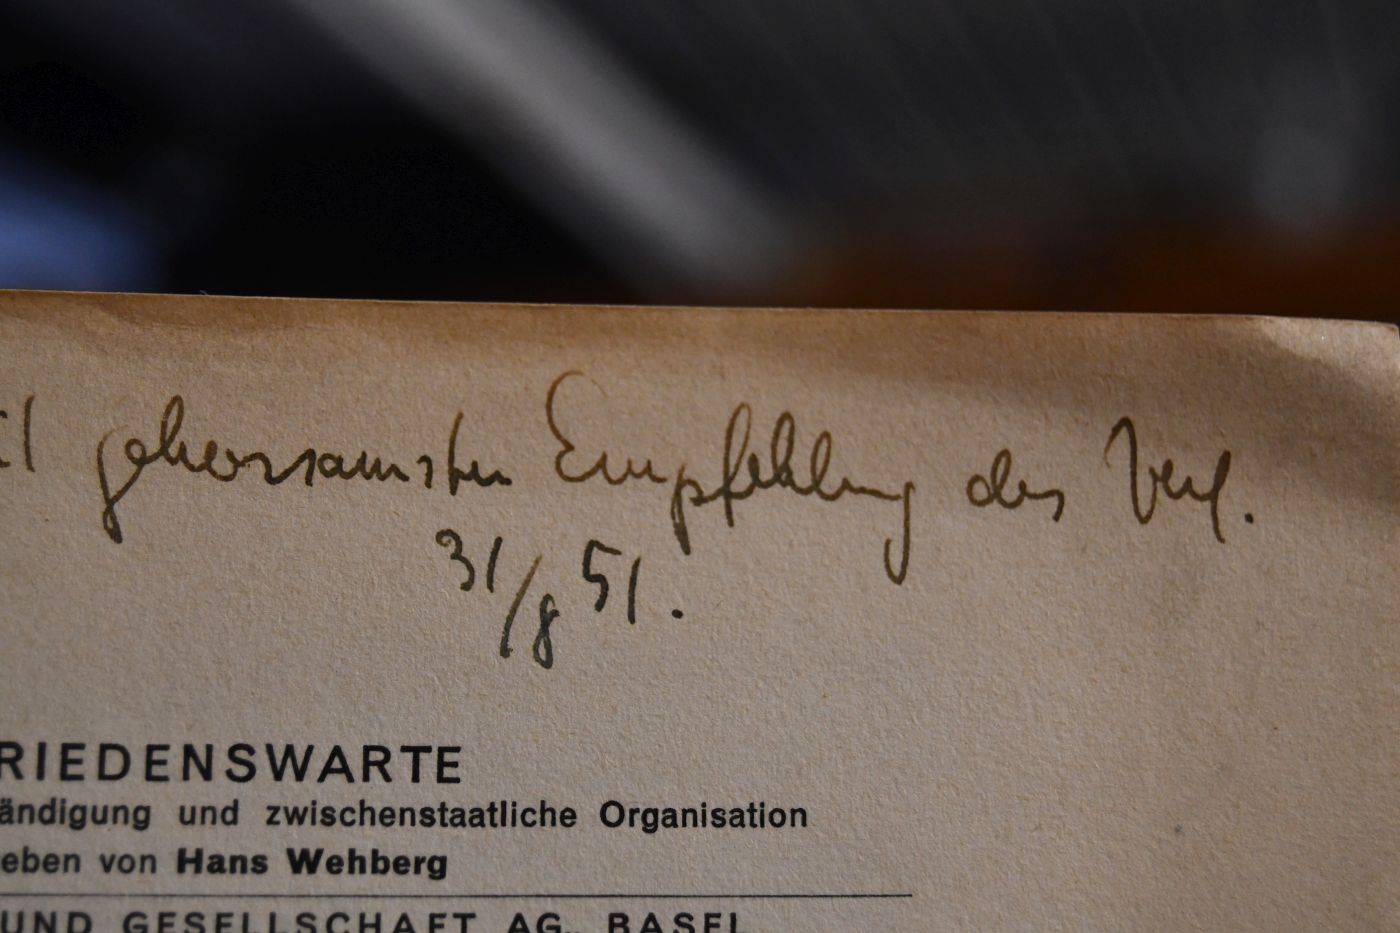 gehorsamster Empfehlung des Verf.
31/8 51.
RIEDENSWARTE
ändigung und zwischenstaatliche Organisation
eben von Hans Wehberg
UND GESELLSCHAFT AG. BASEL